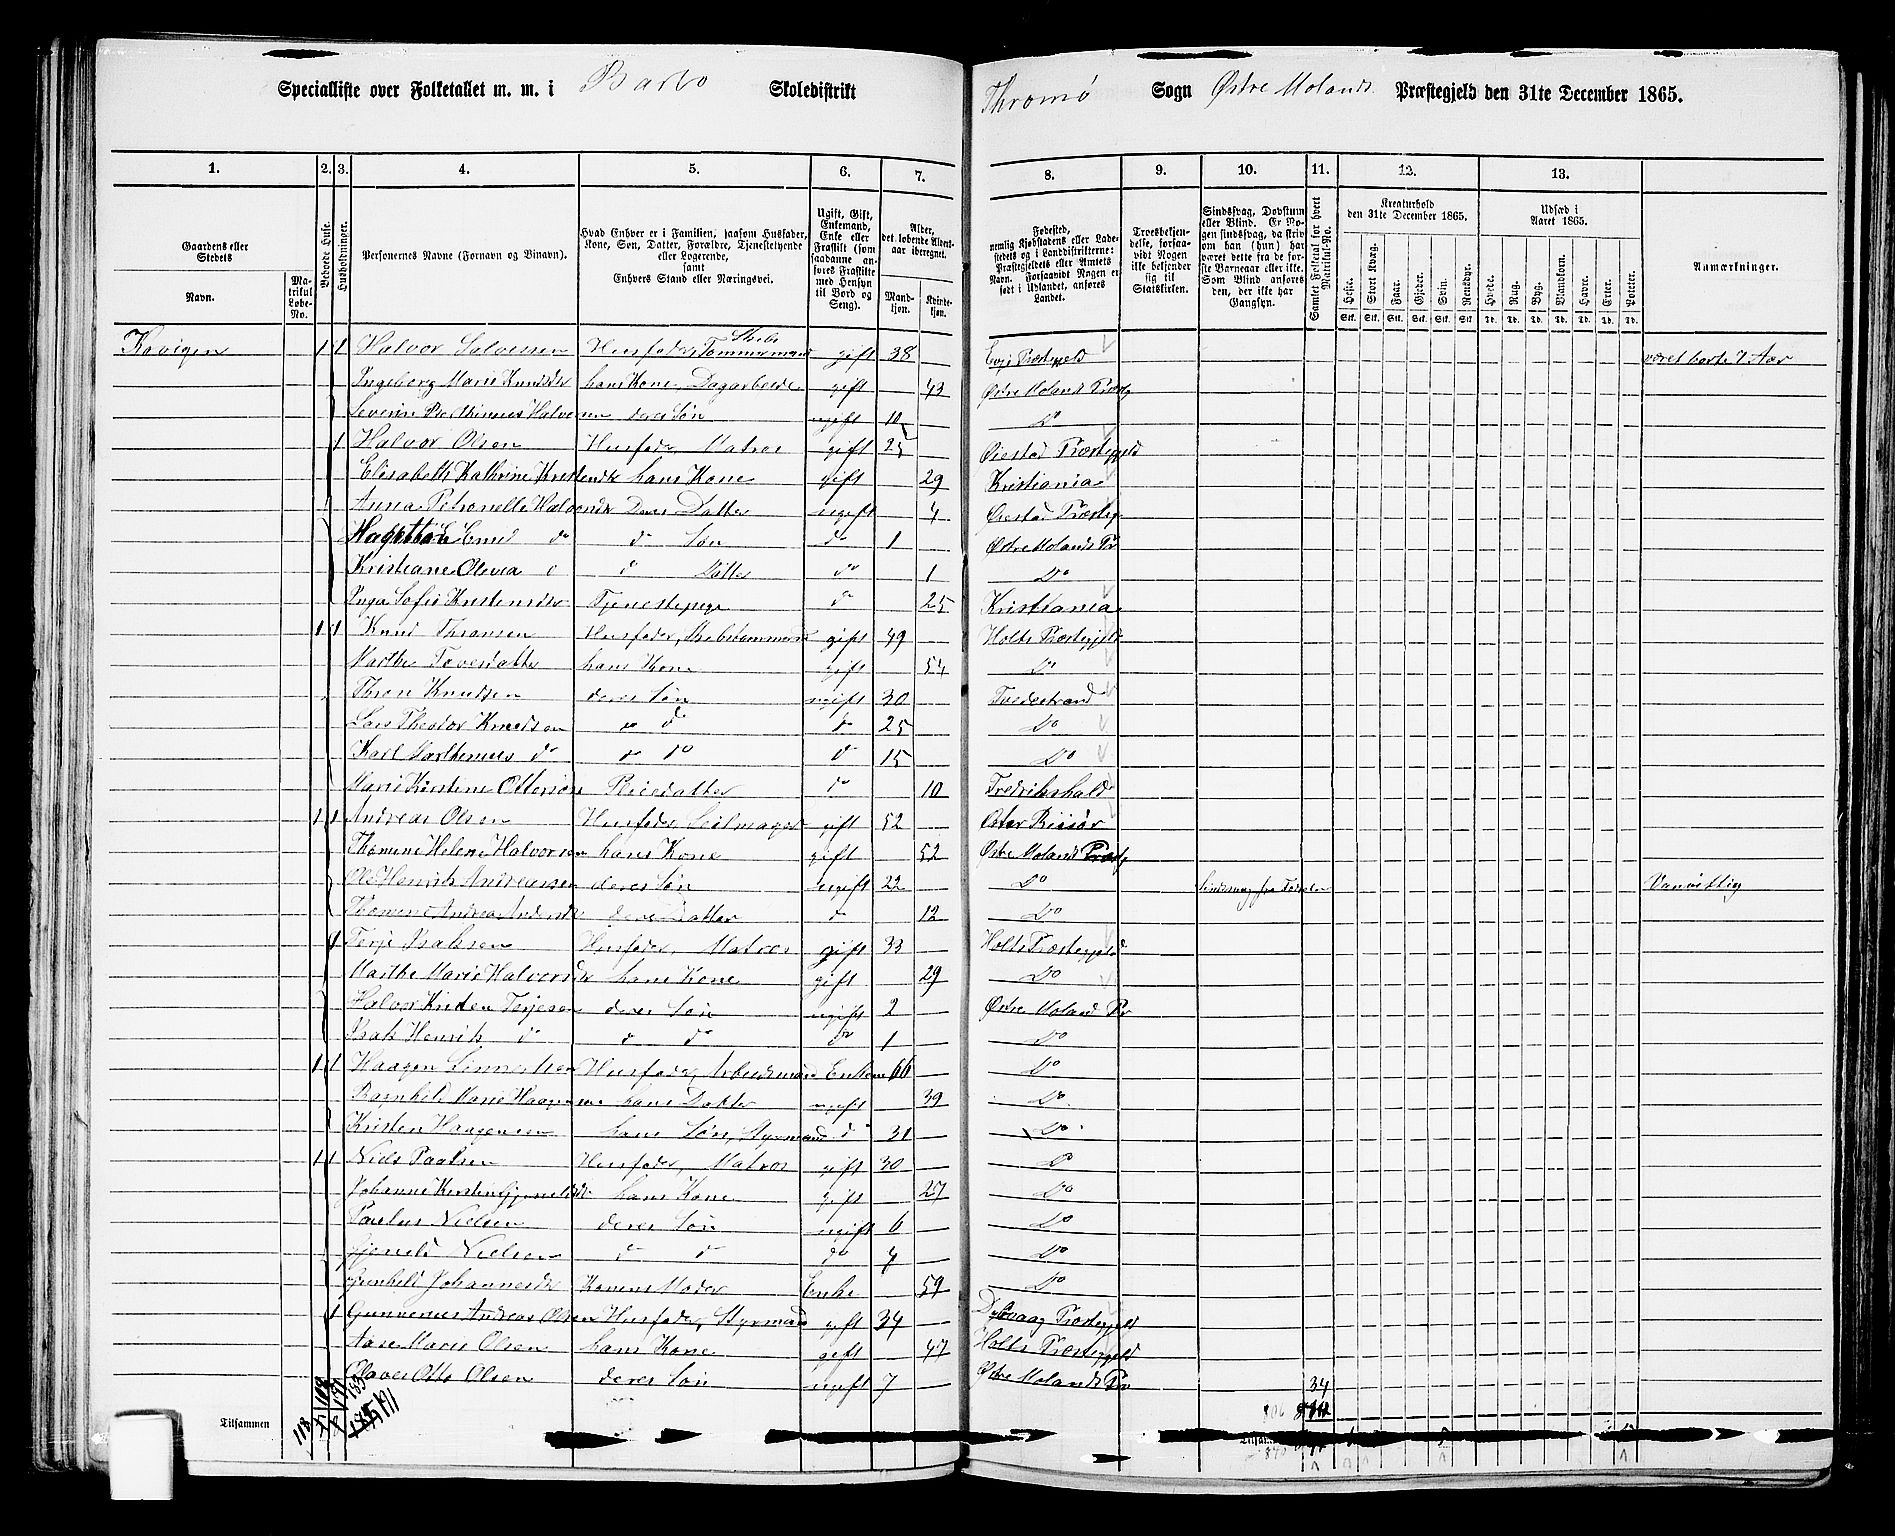 Specialliste over Folketallet m. m. i Barbo Skoledistrikt Thromø Sogn Østre Molands Præstegjeld den 31te December 1865.
1. 2. 3. 4. 5. 6. 7. 8. 9. 10. 11. 12. 13.
Gaardens eller Stedets Navn. Matrikul Løbe-No. Beboede Huse. Husholdninger. Personernes Navne (Fornavn og Binavn). Hvad Enhver er i Familien, saasom Husfader, Kone, Søn, Datter, Forældre, Tjenestetyende eller Logerende, samt Enhvers Stand eller Næringsvei. Ugift, Gift, Enkemand, Enke eller Fraskilt (som saadanne anføres Fraskilte med Hensyn til Bord og Seng). Alder, det løbende Aldersaar iberegnet. Mandkjøn. Kvindekjøn.
Fødested, nemlig Kjøbstadens eller Ladestedets og i Landdistrikterne: Præstegjeldets eller Amtets Navn. Forsaavidt Nogen er født i Udlandet, anføres Landet. Troesbekjendelse, forsaavidt Nogen ikke bekjender sig til Statskirken. Sindssvag, Døvstum eller Blind. Er Nogen sindssvag, da skriv om han (hun) har været dette fra de første Barneaar eller ikke. Som Blind anføres den, der ikke har Gangsyn. Samlet Folketal for hvert Matrikul-No. Kreaturhold den 31te December 1865. Udsæd i Aaret 1865. Anmærkninger.
Heste. Stort Kvæg. Faar. Gjeder. Svin. Rensdyr. Hvede. Rug. Byg. Blandkorn. Havre. Erter. Poteter.
Stk. Stk. Stk. Stk. Stk. Stk. Td. Td. Td. Td. Td. Td. Td.
Kovigen 1 1 Halvor Salvessen Husfader, Skibs Tømmermand gift 38 Evje Præstegjeld været borte 7 Aar
Ingeborg Marie Knudsdtr hans Kone, gift 43 Østre Molands Præstg
Severin Halvorsen deres Søn ugift 10 Do
1 Halvor Olsen Husfader, Matros gift 25 Øiestad Præstegjeld
Elisabeth Kathrine hans Kone gift 29 Kristiania
Anna Petronelle Halvorsdtr Deres Datter ugift 4 Øiestad Præsteg
do do Søn do 1 Østre Molands Pr
Kristiane Olevia do do Datter do 1 Do
Inga Sofie Kristensdtr Tjenestepige do 25 Kristiania
1 1 Knud Thronsen Husfader, Skibstømmermand gift 49 Holts Præstegjeld
Marthe Tovesdatter hans Kone gift 54 Do
Thron Knudsen deres Søn ugift 30 Tvedestrand
Lars Theodor Knudsen do do do 25 Do
Karl Marthenius do do do do 15 Do
Marie Kirstine Pleiedatter do 10 Fredrikshald
1 1 Andreas Olsen Husfader, Seilmager gift 52 Øster Riisør
Thomine Helene Halvorsen hans Kone gift 52 Østre Molands Præstg
Ole Henrik Andreassen deres Søn ugift 22 Do Sindssvag fra Fødselen Vanvittig
Andrea deres Datter do 12 Do
1 Terje Isaksen Husfader, Matros gift 33 Holts Præstegjeld
Marthe Marie Halvorsdtr hans Kone gift 29 Do
Halvor Kristen Terjesen deres Søn ugift 2 Østre Moland Pr
Isak Henrik do do do do 1 Do
1 1 Haagen Husfader, Arbeidsmand Enkem 66 Do
Marie Haagensen hans Datter ugift 39 Do
Kristen Haagensen hans Søn, Styrmand do 31 Do
1 1 Niels Paulsen Husfader, Matros gift 30 Do
Johanne hans Kone gift 27 Do
Paulus Nielsen deres Søn ugift 6 Do
Nielsen do do do 4 Do
Gunhild Johannesdtr Konens Moder Enke 59 Do
1 Gunvenius Andreas Olsen Husfader, Styrmand gift 34 Dybvaag Præstegjeld
Aase Marie Olsen hans Kone gift 47 Holts Præstegjeld
Olaves Otto Olsen deres Søn ugift 7 Østre Molands Pr 34
Tilsammen